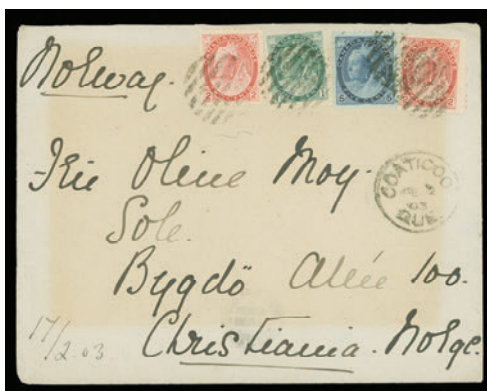 Norway.
Frk Oline Moy.
Sole.
Bygdö Allée 100.
Christiania. Norge.
17/2.03
COATICOO
03
QUE.